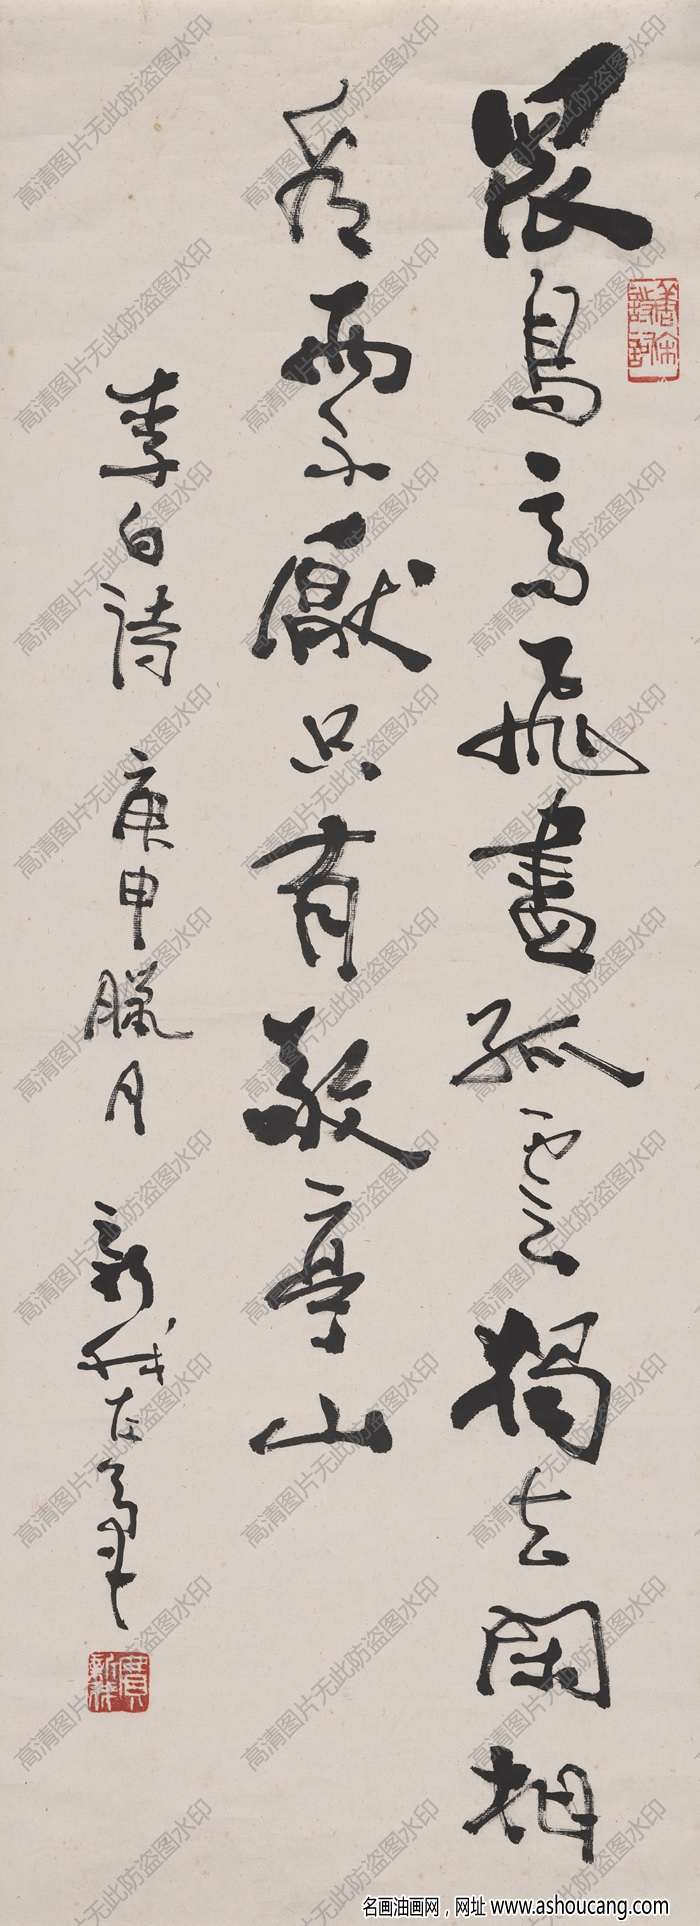 眾鳥高飛盡孤雲獨去閑相
看兩不厭只有敬亭山
李白詩 庚申臘月 新我左筆
費新我
高清图片无此防盗图水印
名画油画网，网址 www.ashoucang.com